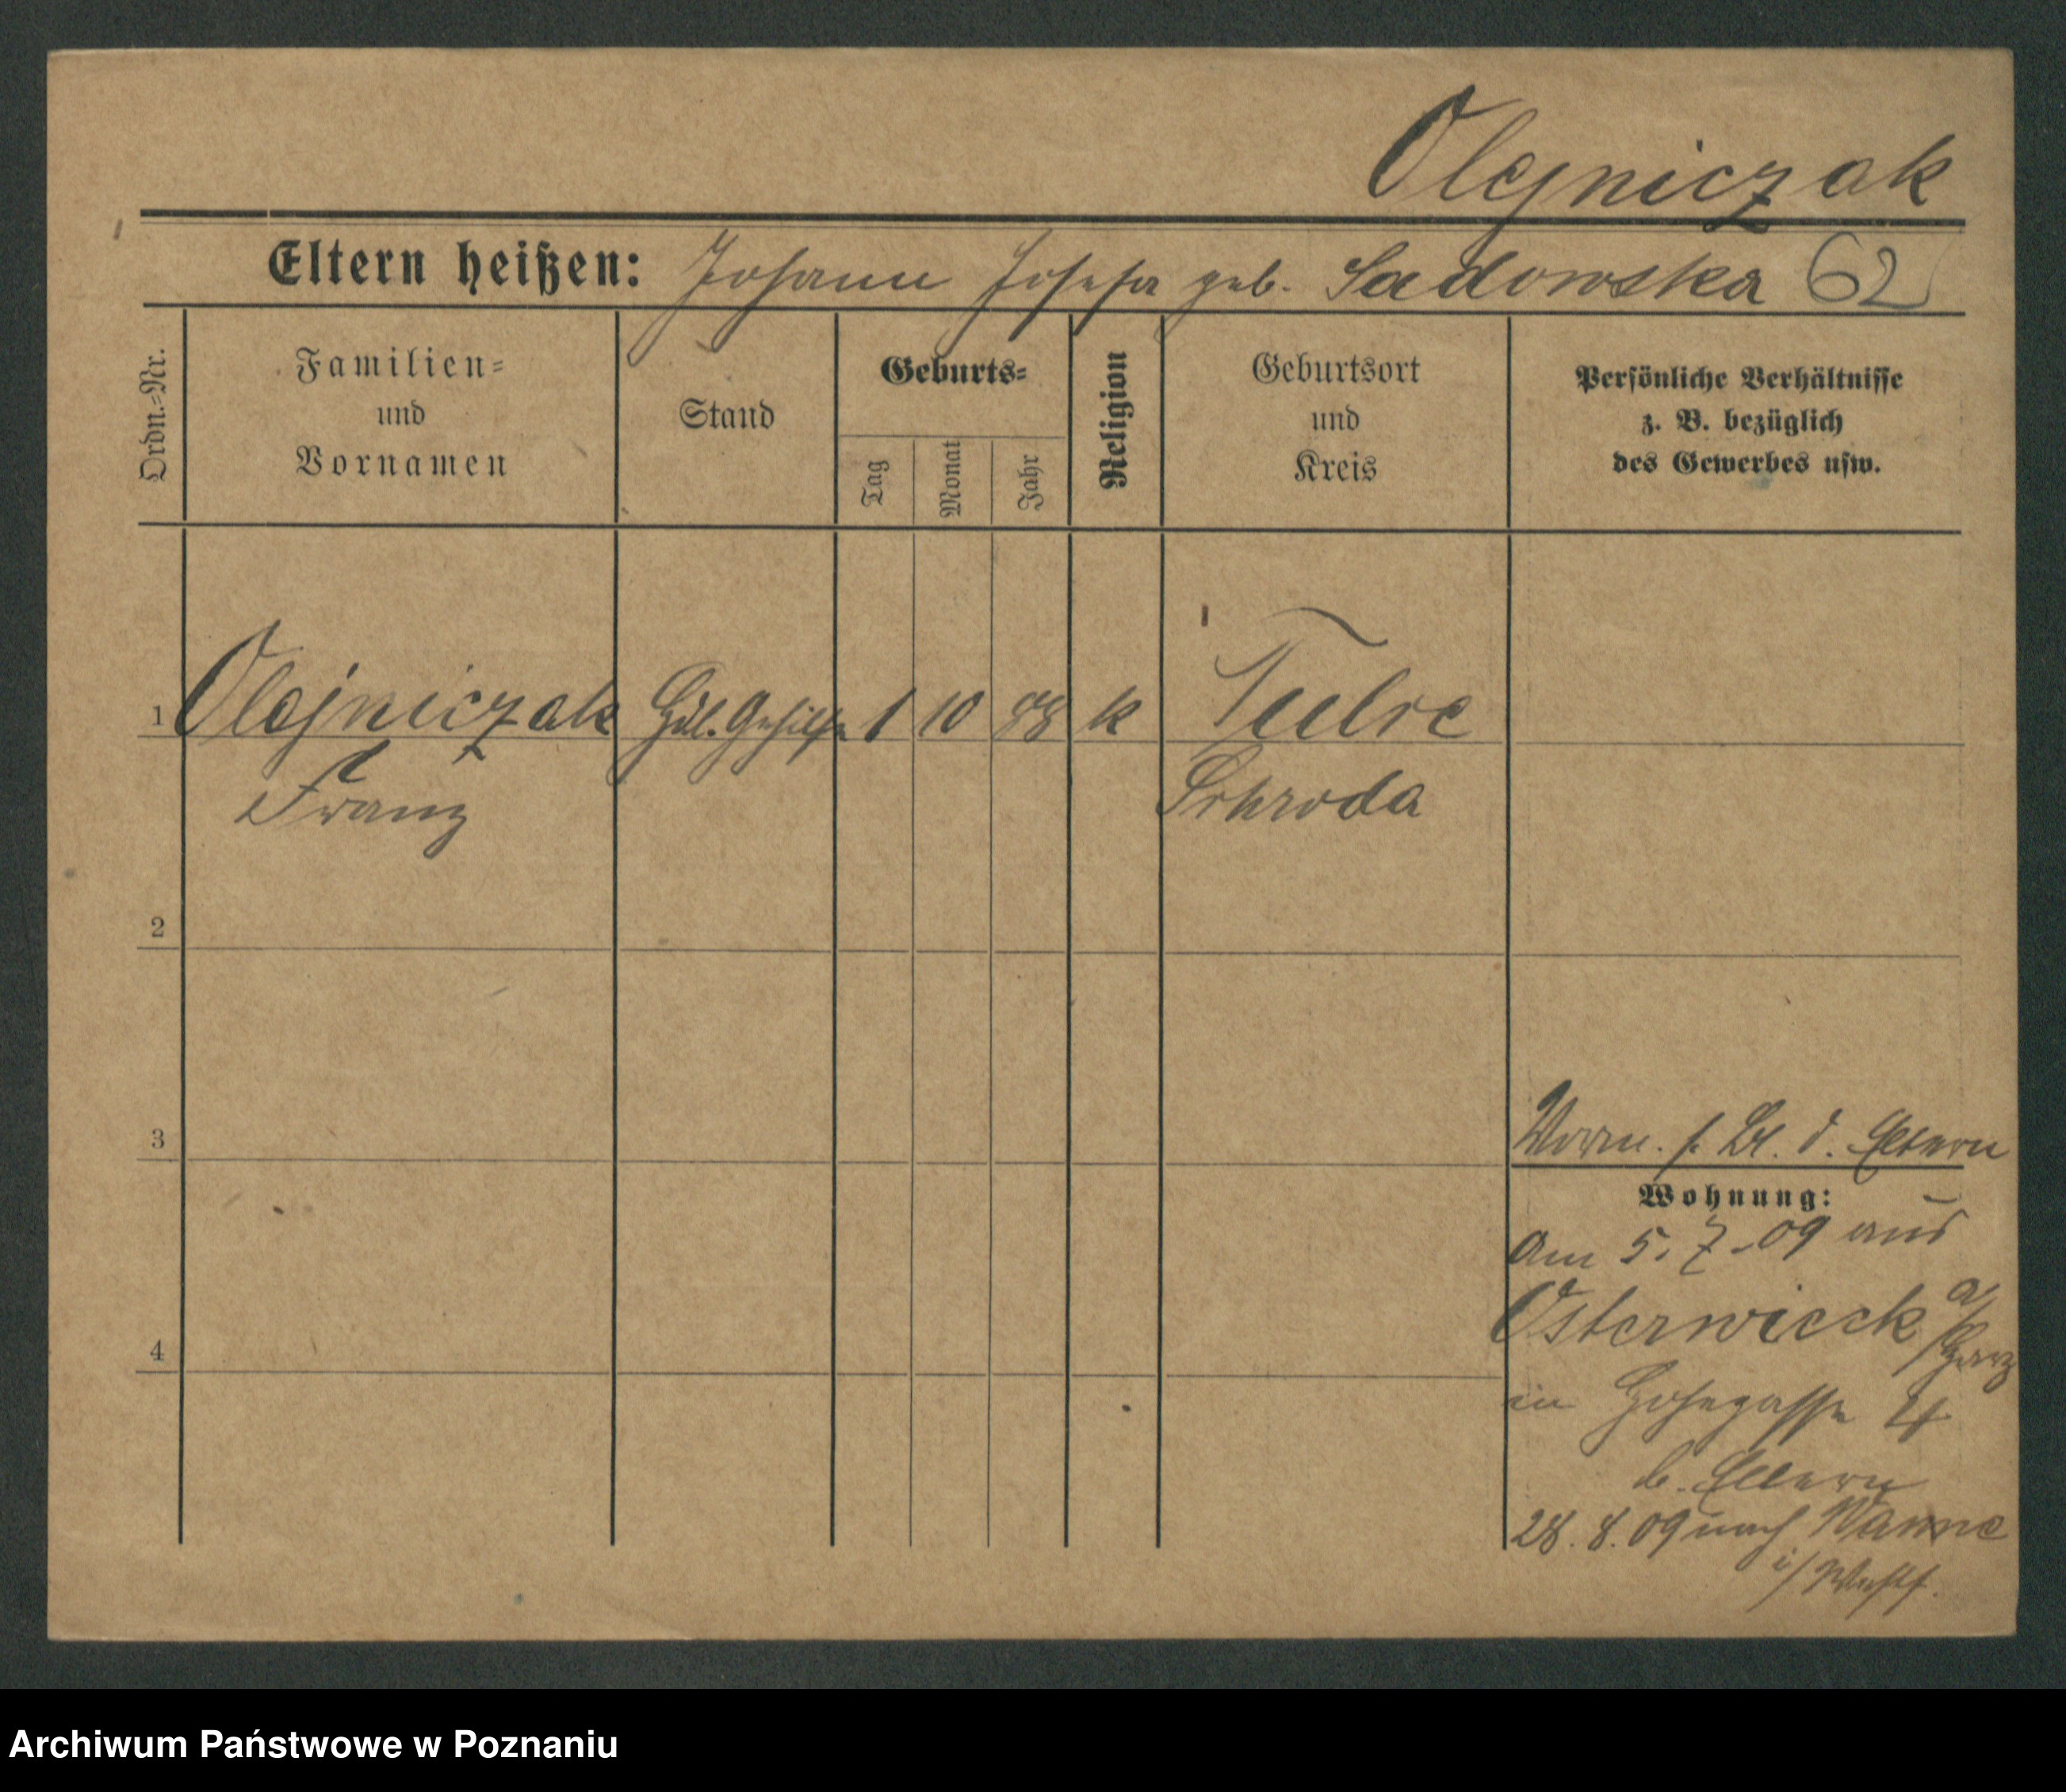 Olejniczak
Eltern heißen: Johann Josefa geb. Sadowska 62
Ordn.=Nr.
Familien=
und
Vornamen
Stand
Geburts=
Tag
Monat
Jahr
Religion
Geburtsort
und
Kreis
Persönliche Verhältnisse
z. B. bezüglich
des Gewerbes usw.
1 Olejniczak 1 10 88 k Tulce
Franz Schroda
2
3
d. Eltern
Wohnung:
am 5. 7. 09 aus
Osterwieck a/Harz
in Hohegasse 4
b. Eltern
28. 8. 09 nach Wanne
i/Westf.
4
Archiwum Państwowe w Poznaniu